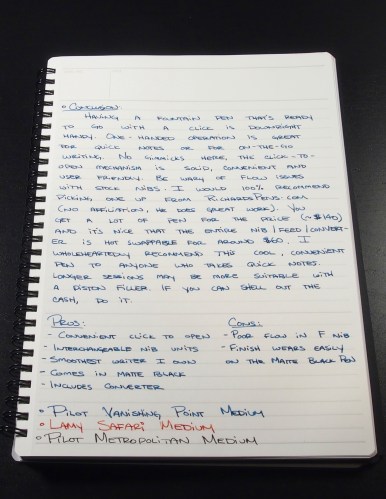 • Conclusion:
Having a fountain pen that's ready
to go with a click is downright
handy. One-handed operation is great
for quick notes or for on-the-go
writing. No gimmicks here, the click-to-
open mechanism is solid, convenient and
user friendly. Be wary of flow issues
with stock nibs. I would 100% recommend
picking one up from RichardsPens.com
(no affiliation, he does great work). You
get a lot of pen for the price (~$140)
and it's nice that the entire nib/feed/convert-
er is hot swappable for around $60. I
wholeheartedly recommend this cool, convenient
pen to anyone who takes quick notes.
Longer sessions may be more suitable with
a piston filler. If you can shell out the
cash, do it.
Pros: Cons:
- Convenient click to open - Poor flow in F nib
- Interchangeable nib units - Finish wears easily
- Smoothest writer I own on the Matte Black Pen
- Comes in matte black
- Includes converter
• Pilot Vanishing Point Medium
• Lamy Safari Medium
• Pilot Metropolitan Medium